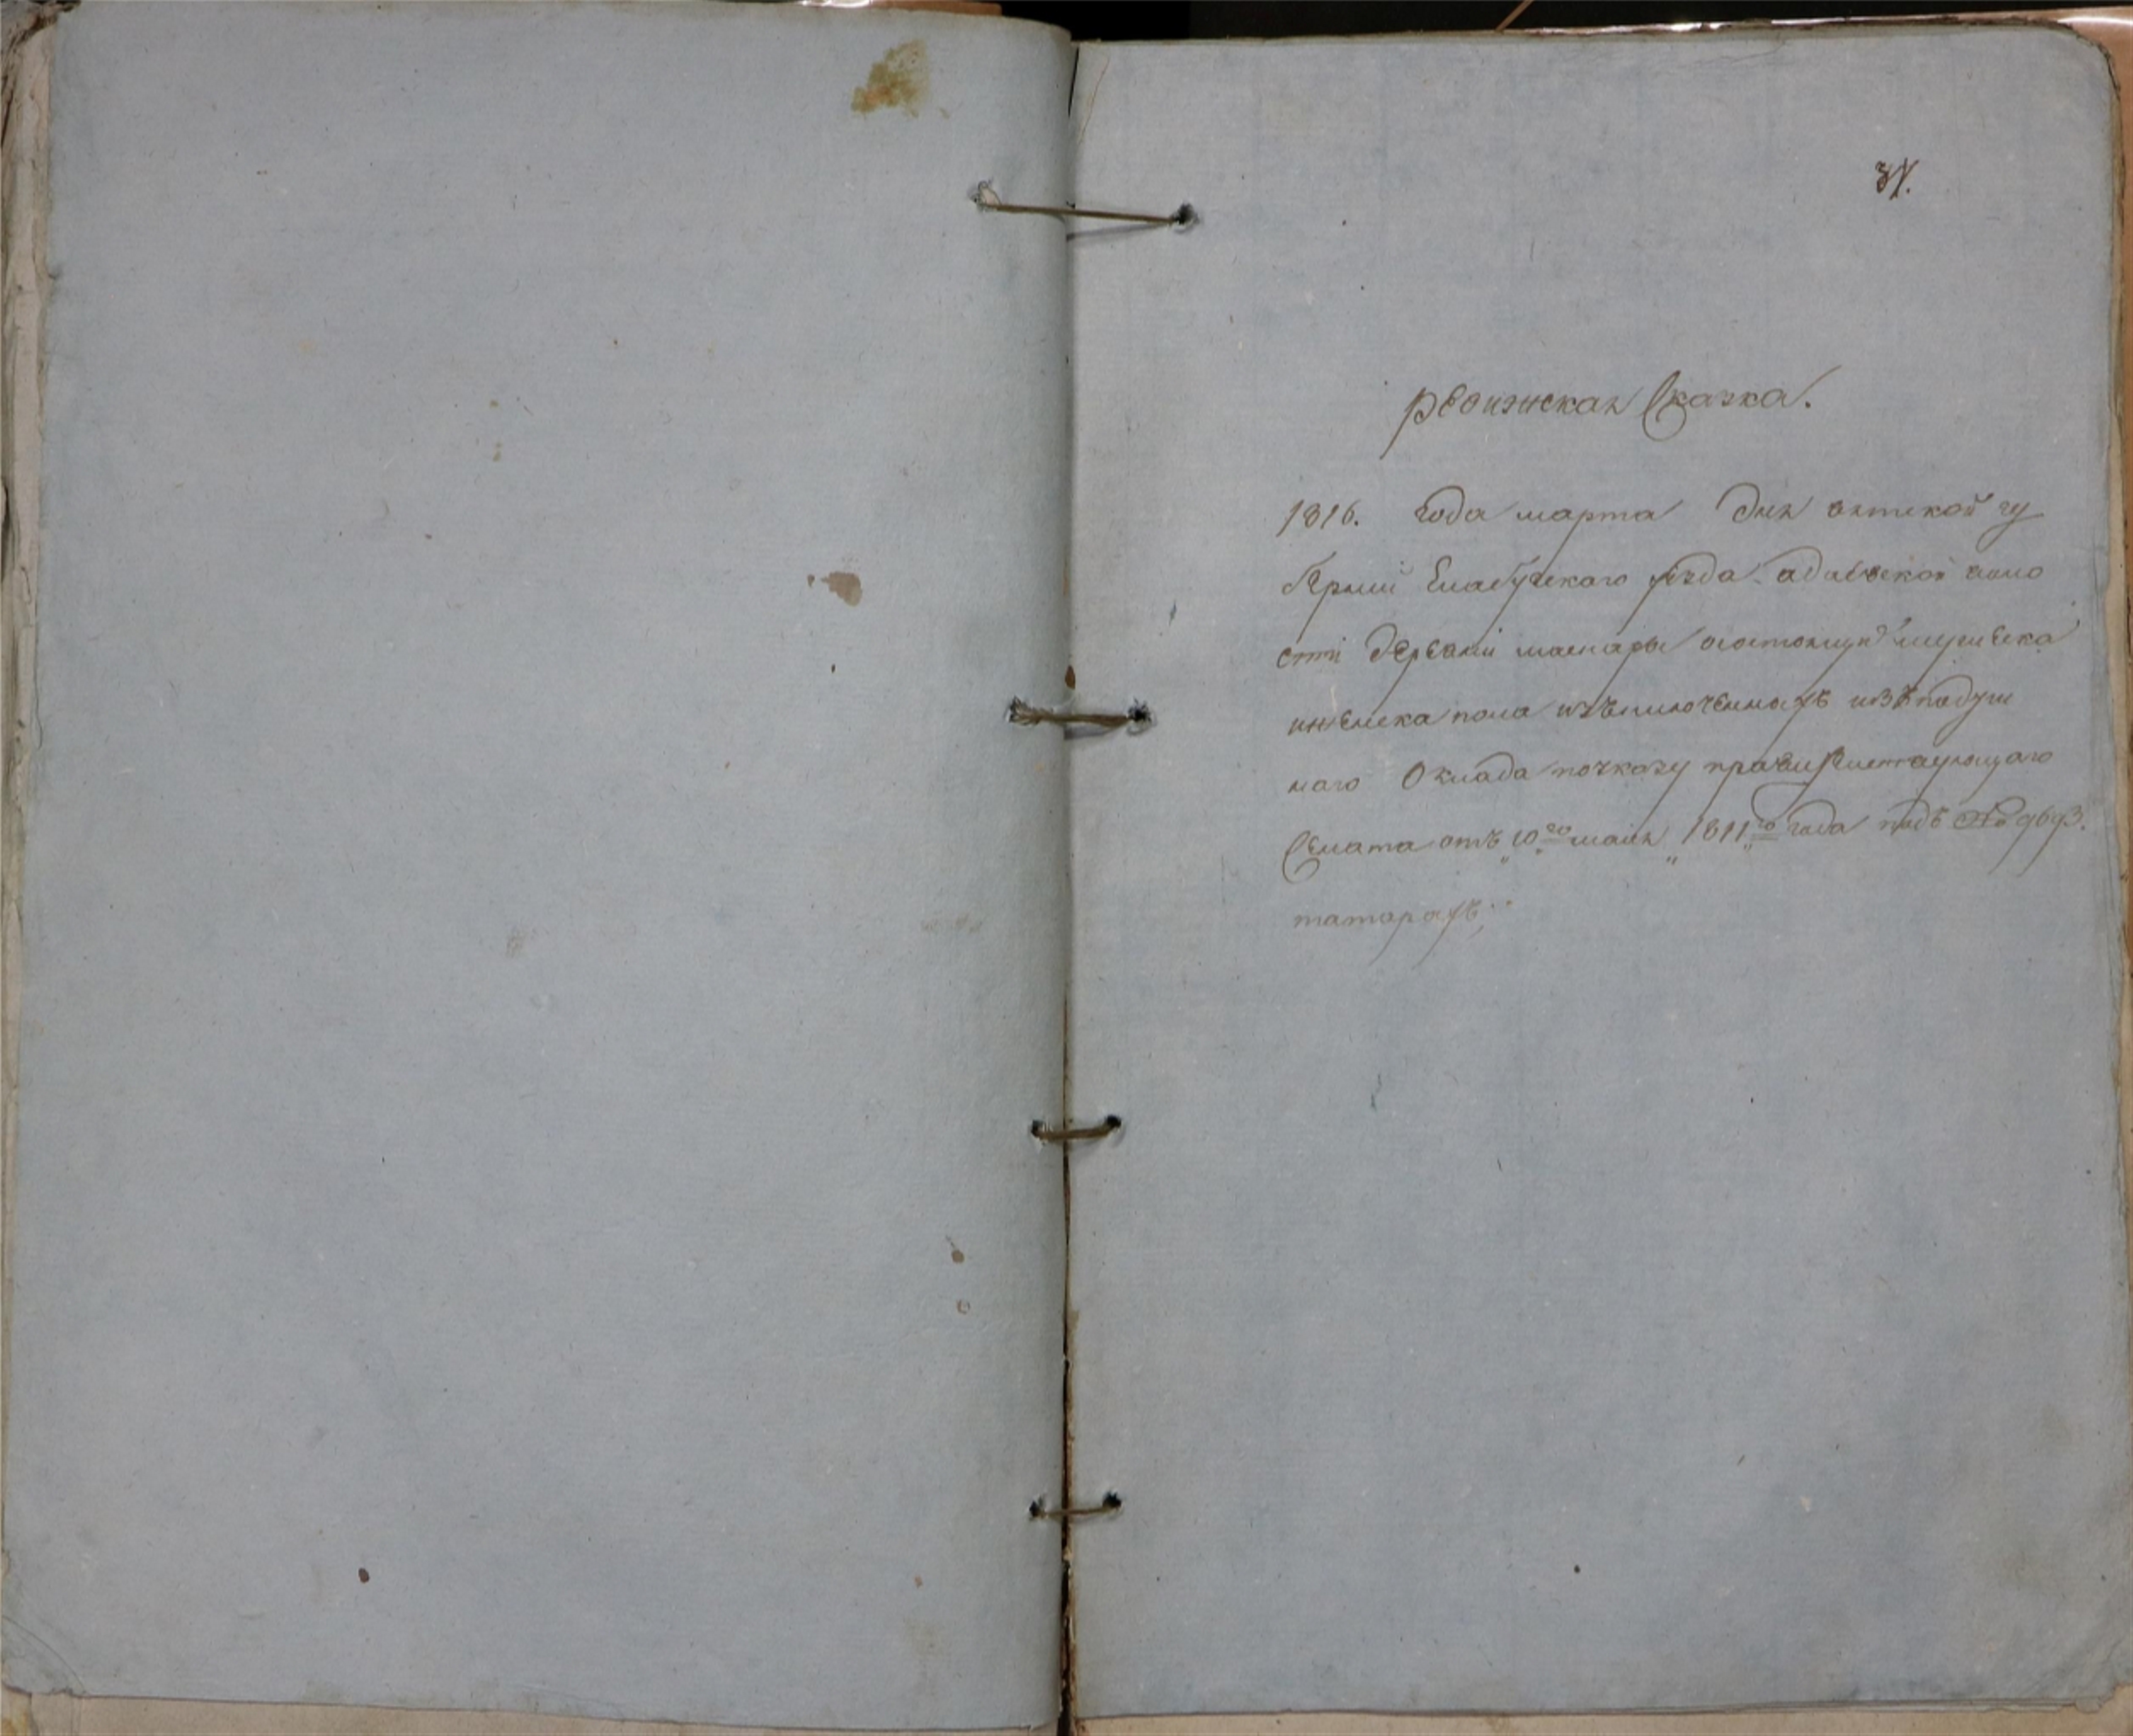 34.
Ревизская Сказка.
1816. Года марта Дня вятской гу
берний Елабужскаго уезда адаевской воло
сти Деревни маснары осостоящих мужеска
иженска пола изключенных изъ подуш
наго Оклада поуказу правительствующаго
Сената отъ 10го маия 1811го года подъ № 9693.
татарахъ;